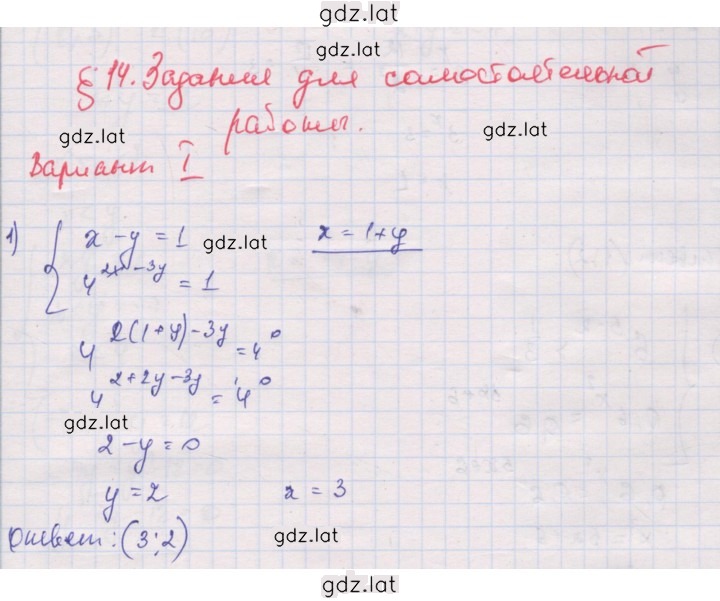 gdz.lat
gdz.lat
§ 14. Задания для самостоятельной
gdz.lat
работы.
gdz.lat
Вариант I
1) { x - y = 1
gdz.lat
x = 1 + y
4^(2x - 3y) = 1
4^(2(1+y) - 3y) = 4^0
4^(2 + 2y - 3y) = 4^0
gdz.lat
2 - y = 0
y = 2
x = 3
Ответ: (3; 2)
gdz.lat
gdz.lat